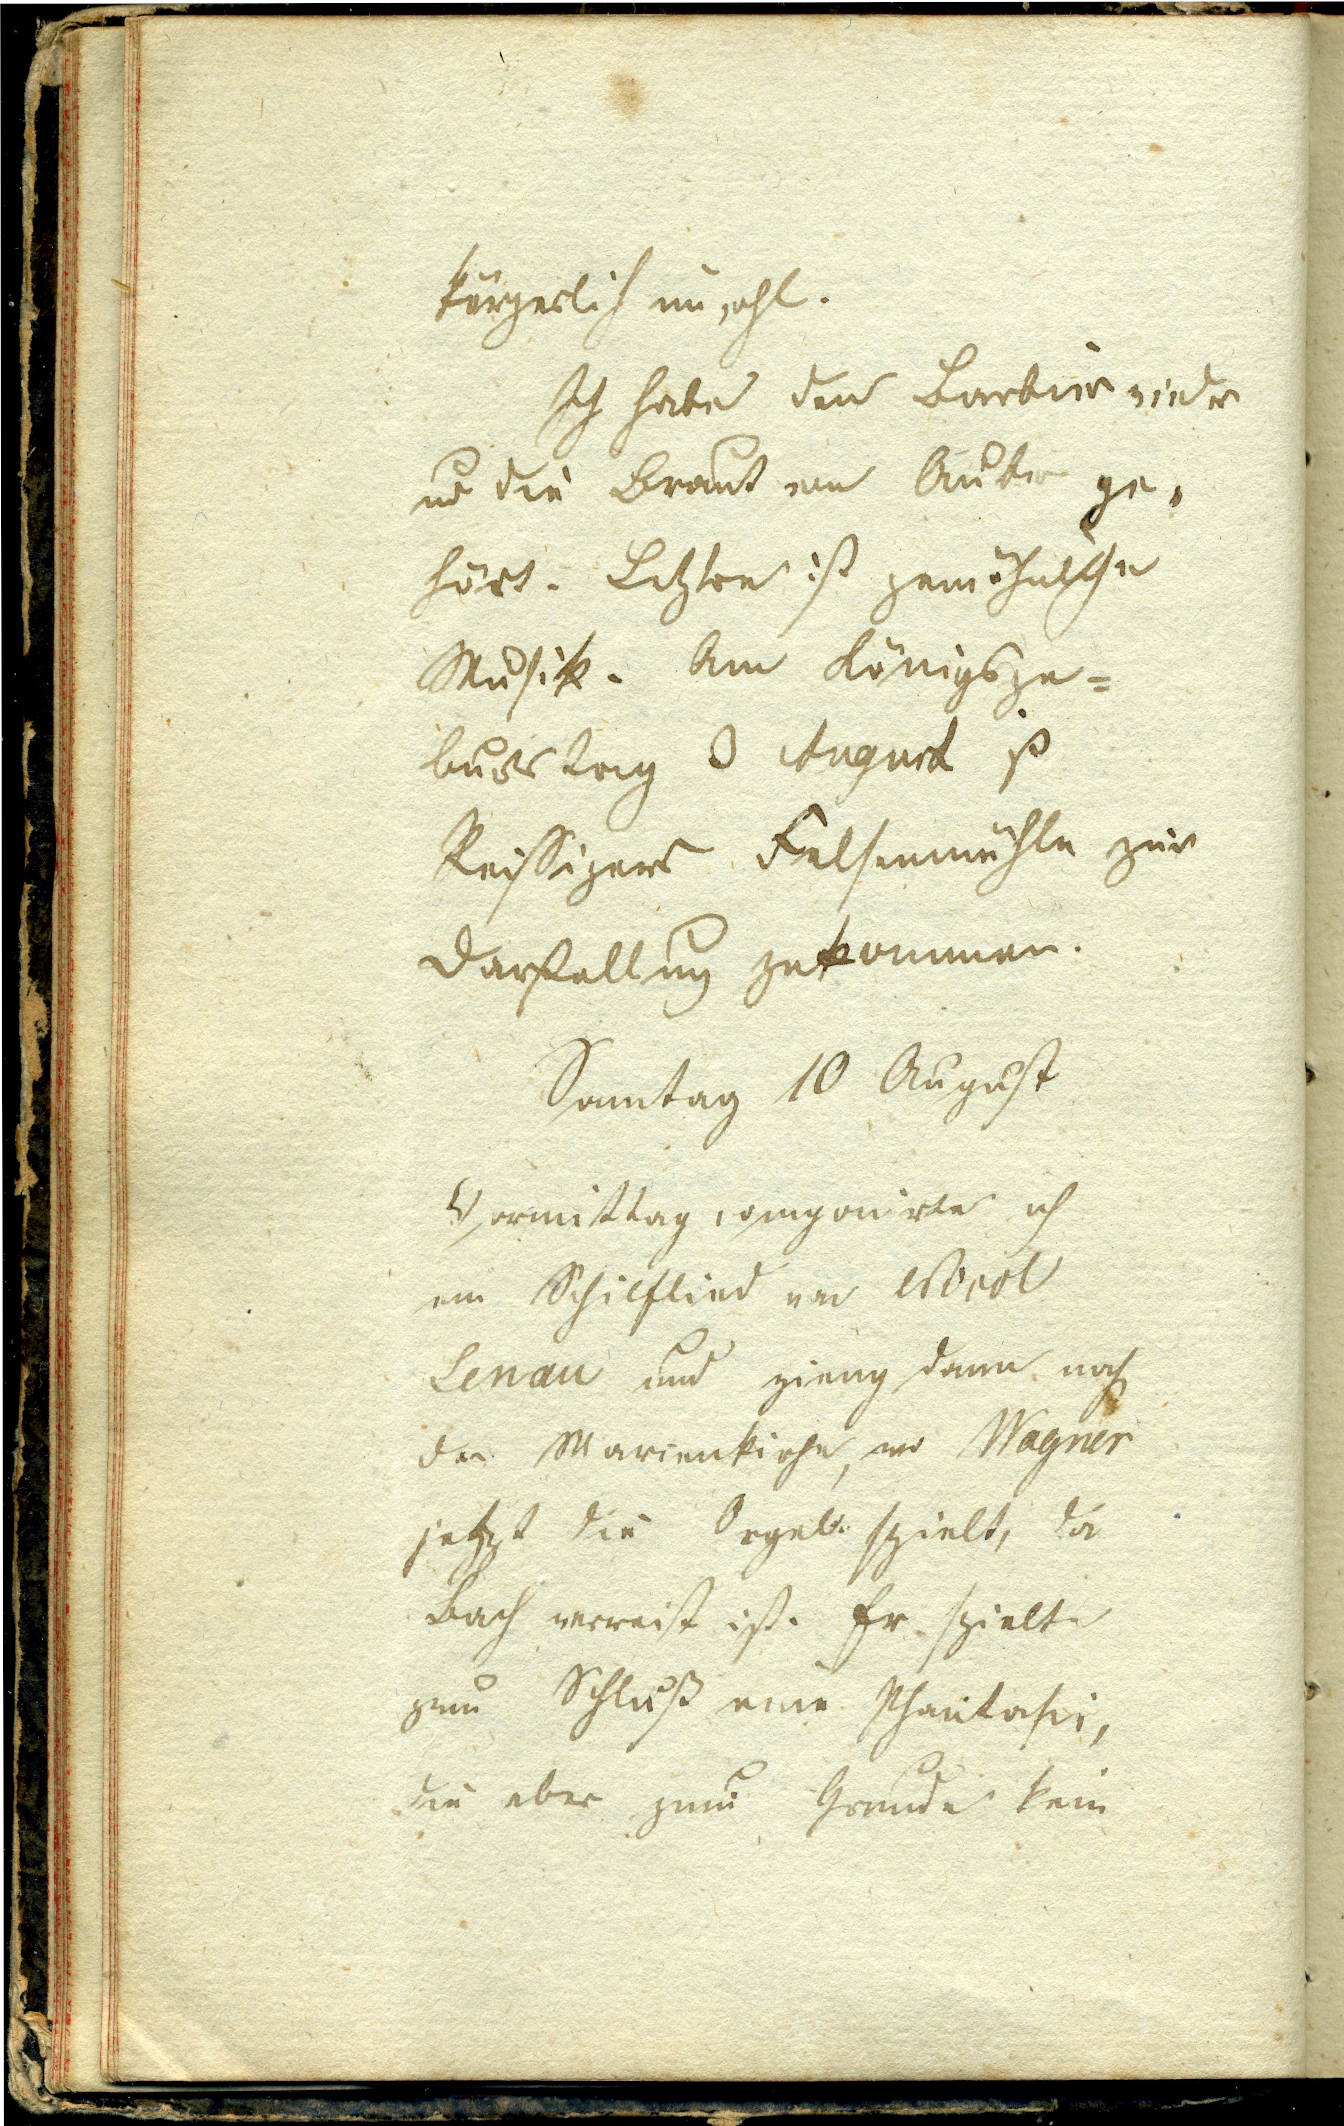 körperlich unwohl.
Ich habe den Barbier wieder
u die Braut von Auber ge„
hört. Letztere ist gewöhnliche
Musik. Am Königsge=
burtstag 3 August ist
Reissigers Felsenmühle zur
Darstellung gekommen.
Sonntag 10 August
Vormittag componirte ich
ein Schilflied von
Lenau und gieng dann nach
der Marienkirche, wo Wagner
jetzt die Orgel spielt, da
Bach verreist ist. Er spielte
zum Schluß eine Phantasie,
die aber zum Grunde kein